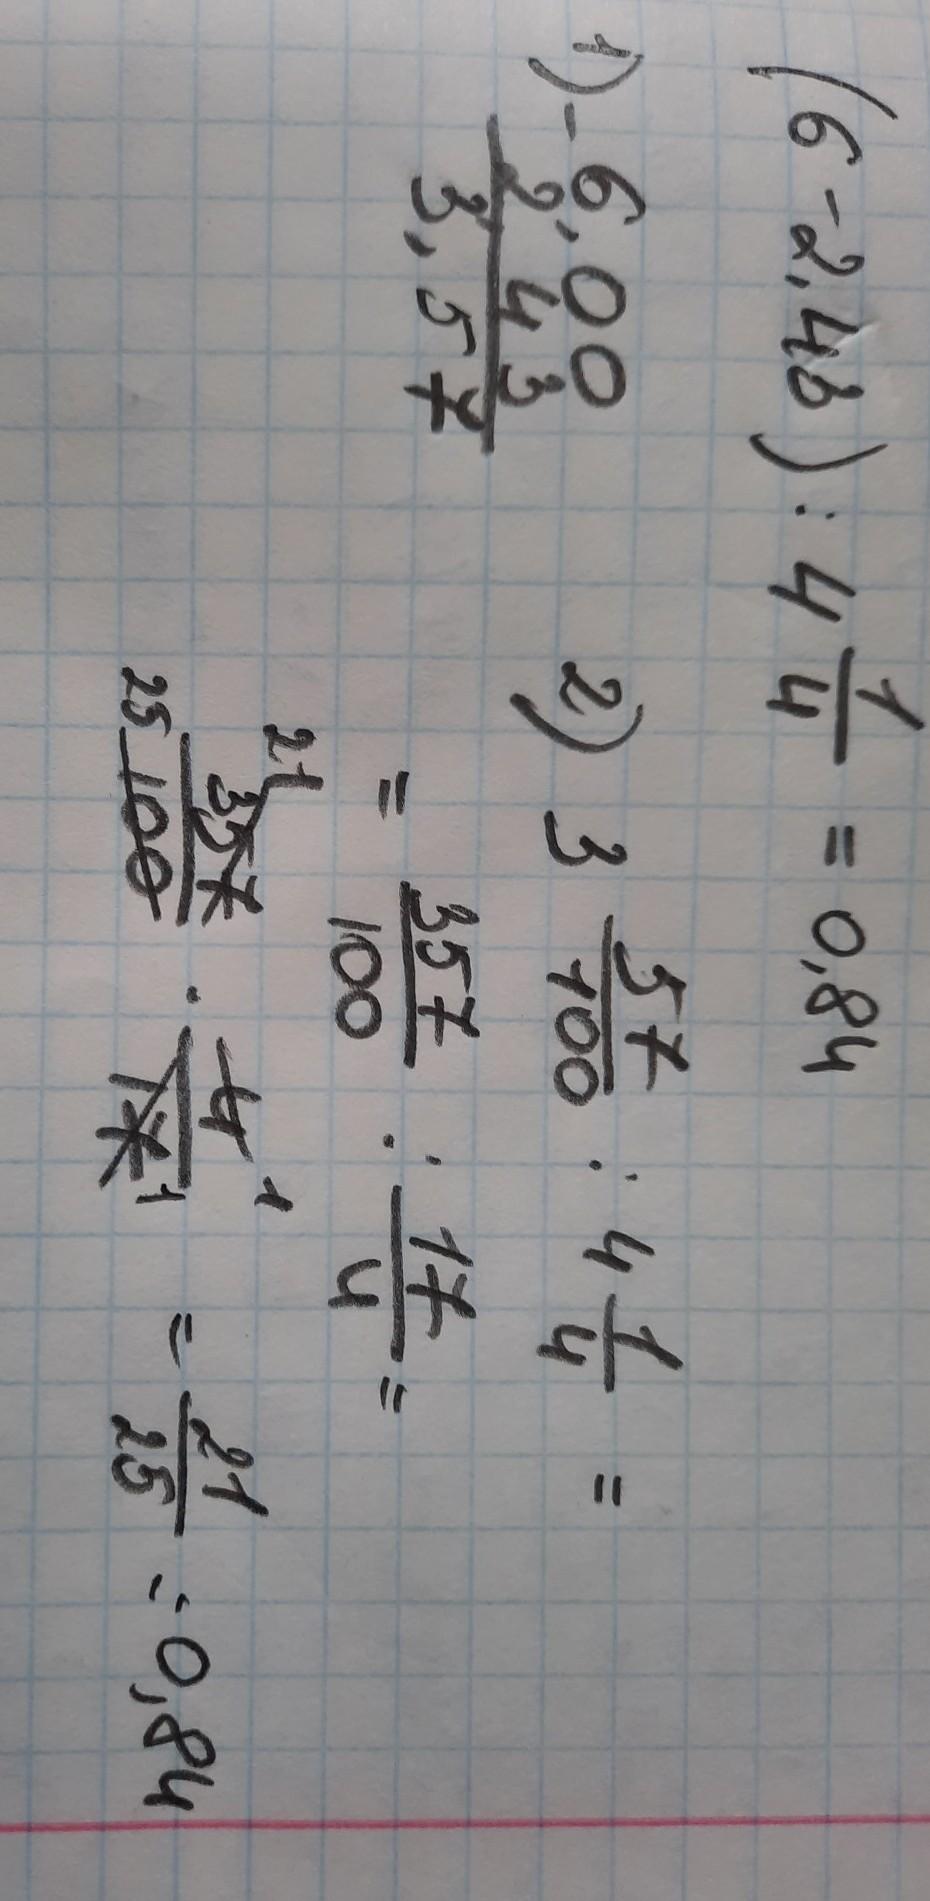 (6 - 2,43) : 4 1/4 = 0,84
1) - 6,00
2,43
3,57
2) 3 57/100 : 4 1/4 =
= 357/100 : 17/4 =
21 357/100 25 · 4 1/17 1 = 21/25 = 0,84